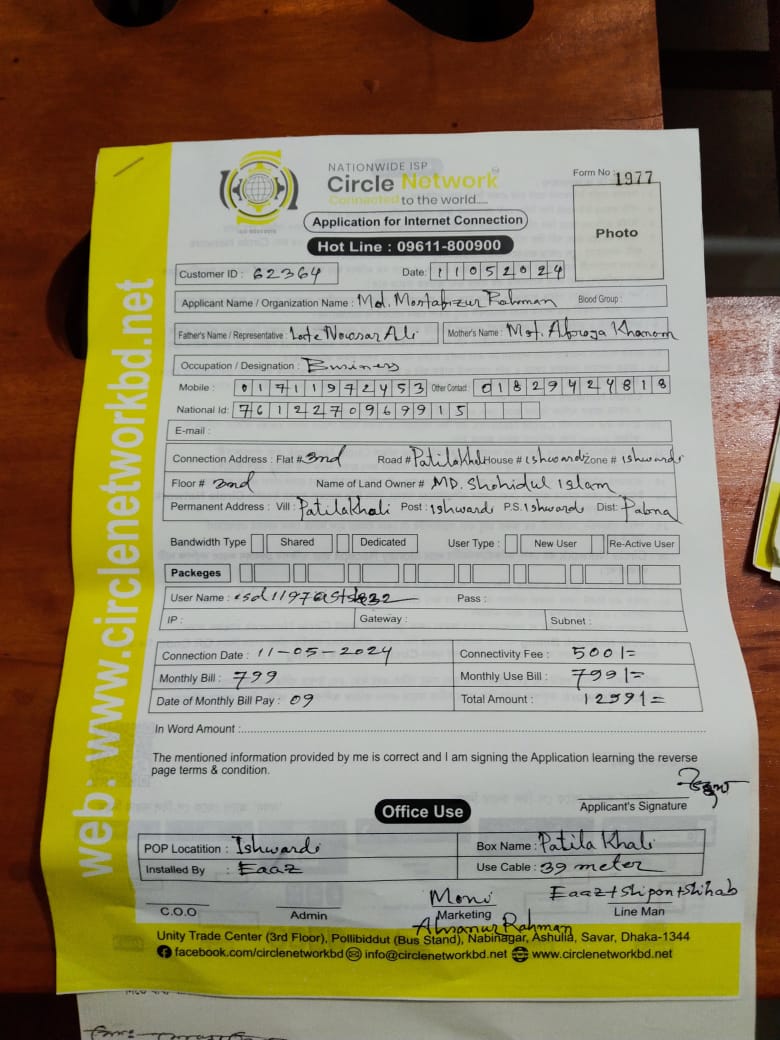 NATIONWIDE ISP
Circle Network
Connected to the world....
Form No : 1977
Application for Internet Connection
Hot Line : 09611-800900
Photo
Customer ID : 62364 Date: 11052024
Applicant Name / Organization Name : Md. Mostafizur Rahman Blood Group :
Father's Name / Representative : Late Nowsar Ali Mother's Name : Mst. Afroza Khanom
Occupation / Designation : Business
Mobile : 01711972453 Other Contact 01829424818
National Id: 7612270969915
E-mail :
Connection Address : Flat # 2nd Road # Patilakhali House # Ishwardi Zone # Ishwardi
Floor # 2nd Name of Land Owner # MD. Shohidul Islam
Permanent Address : Vill : Patilakhali Post : Ishwardi P.S. Ishwardi Dist: Pabna
Bandwidth Type Shared Dedicated User Type : New User Re-Active User
Packeges
User Name : Pass :
IP : Gateway : Subnet :
Connection Date : 11-05-2024 Connectivity Fee : 500/=
Monthly Bill : 799 Monthly Use Bill : 799/=
Date of Monthly Bill Pay : 09 Total Amount : 1299/=
In Word Amount :
The mentioned information provided by me is correct and I am signing the Application learning the reverse
page terms & condition.
Applicant's Signature
Office Use
POP Locatition : Ishwardi Box Name : Patila Khali
Installed By : Eaaz Use Cable : 39 meter
Moni Eaaz+Shipon+Shihab
C.O.O Admin Marketing Line Man
Ahsanur Rahman
Unity Trade Center (3rd Floor), Pollibiddut (Bus Stand), Nabinagar, Ashulia, Savar, Dhaka-1344
facebook.com/circlenetworkbd info@circlenetworkbd.net www.circlenetworkbd.net
web: www.circlenetworkbd.net